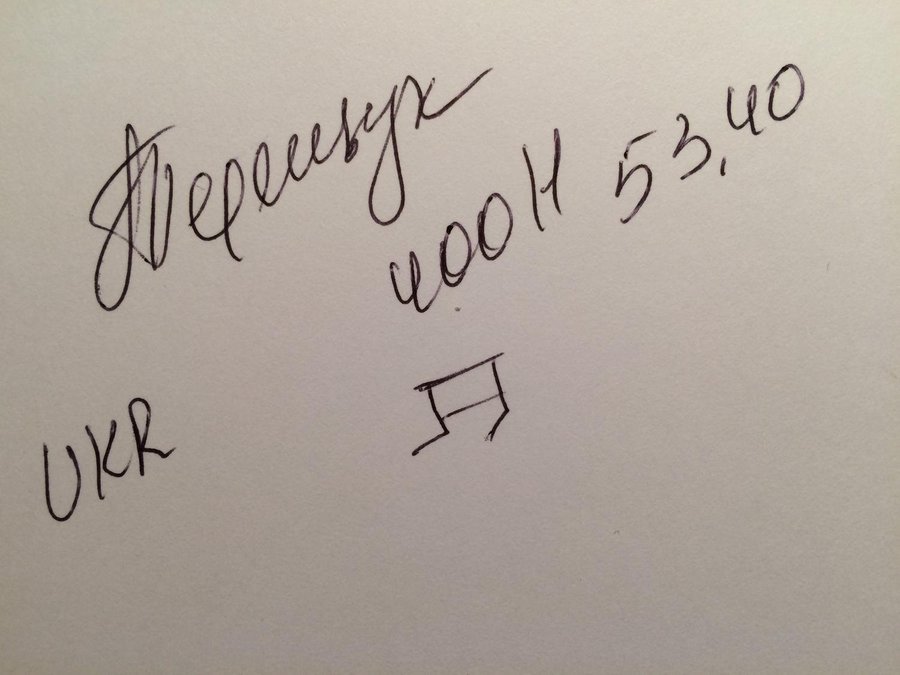 Терещук
400H 53,40
UKR